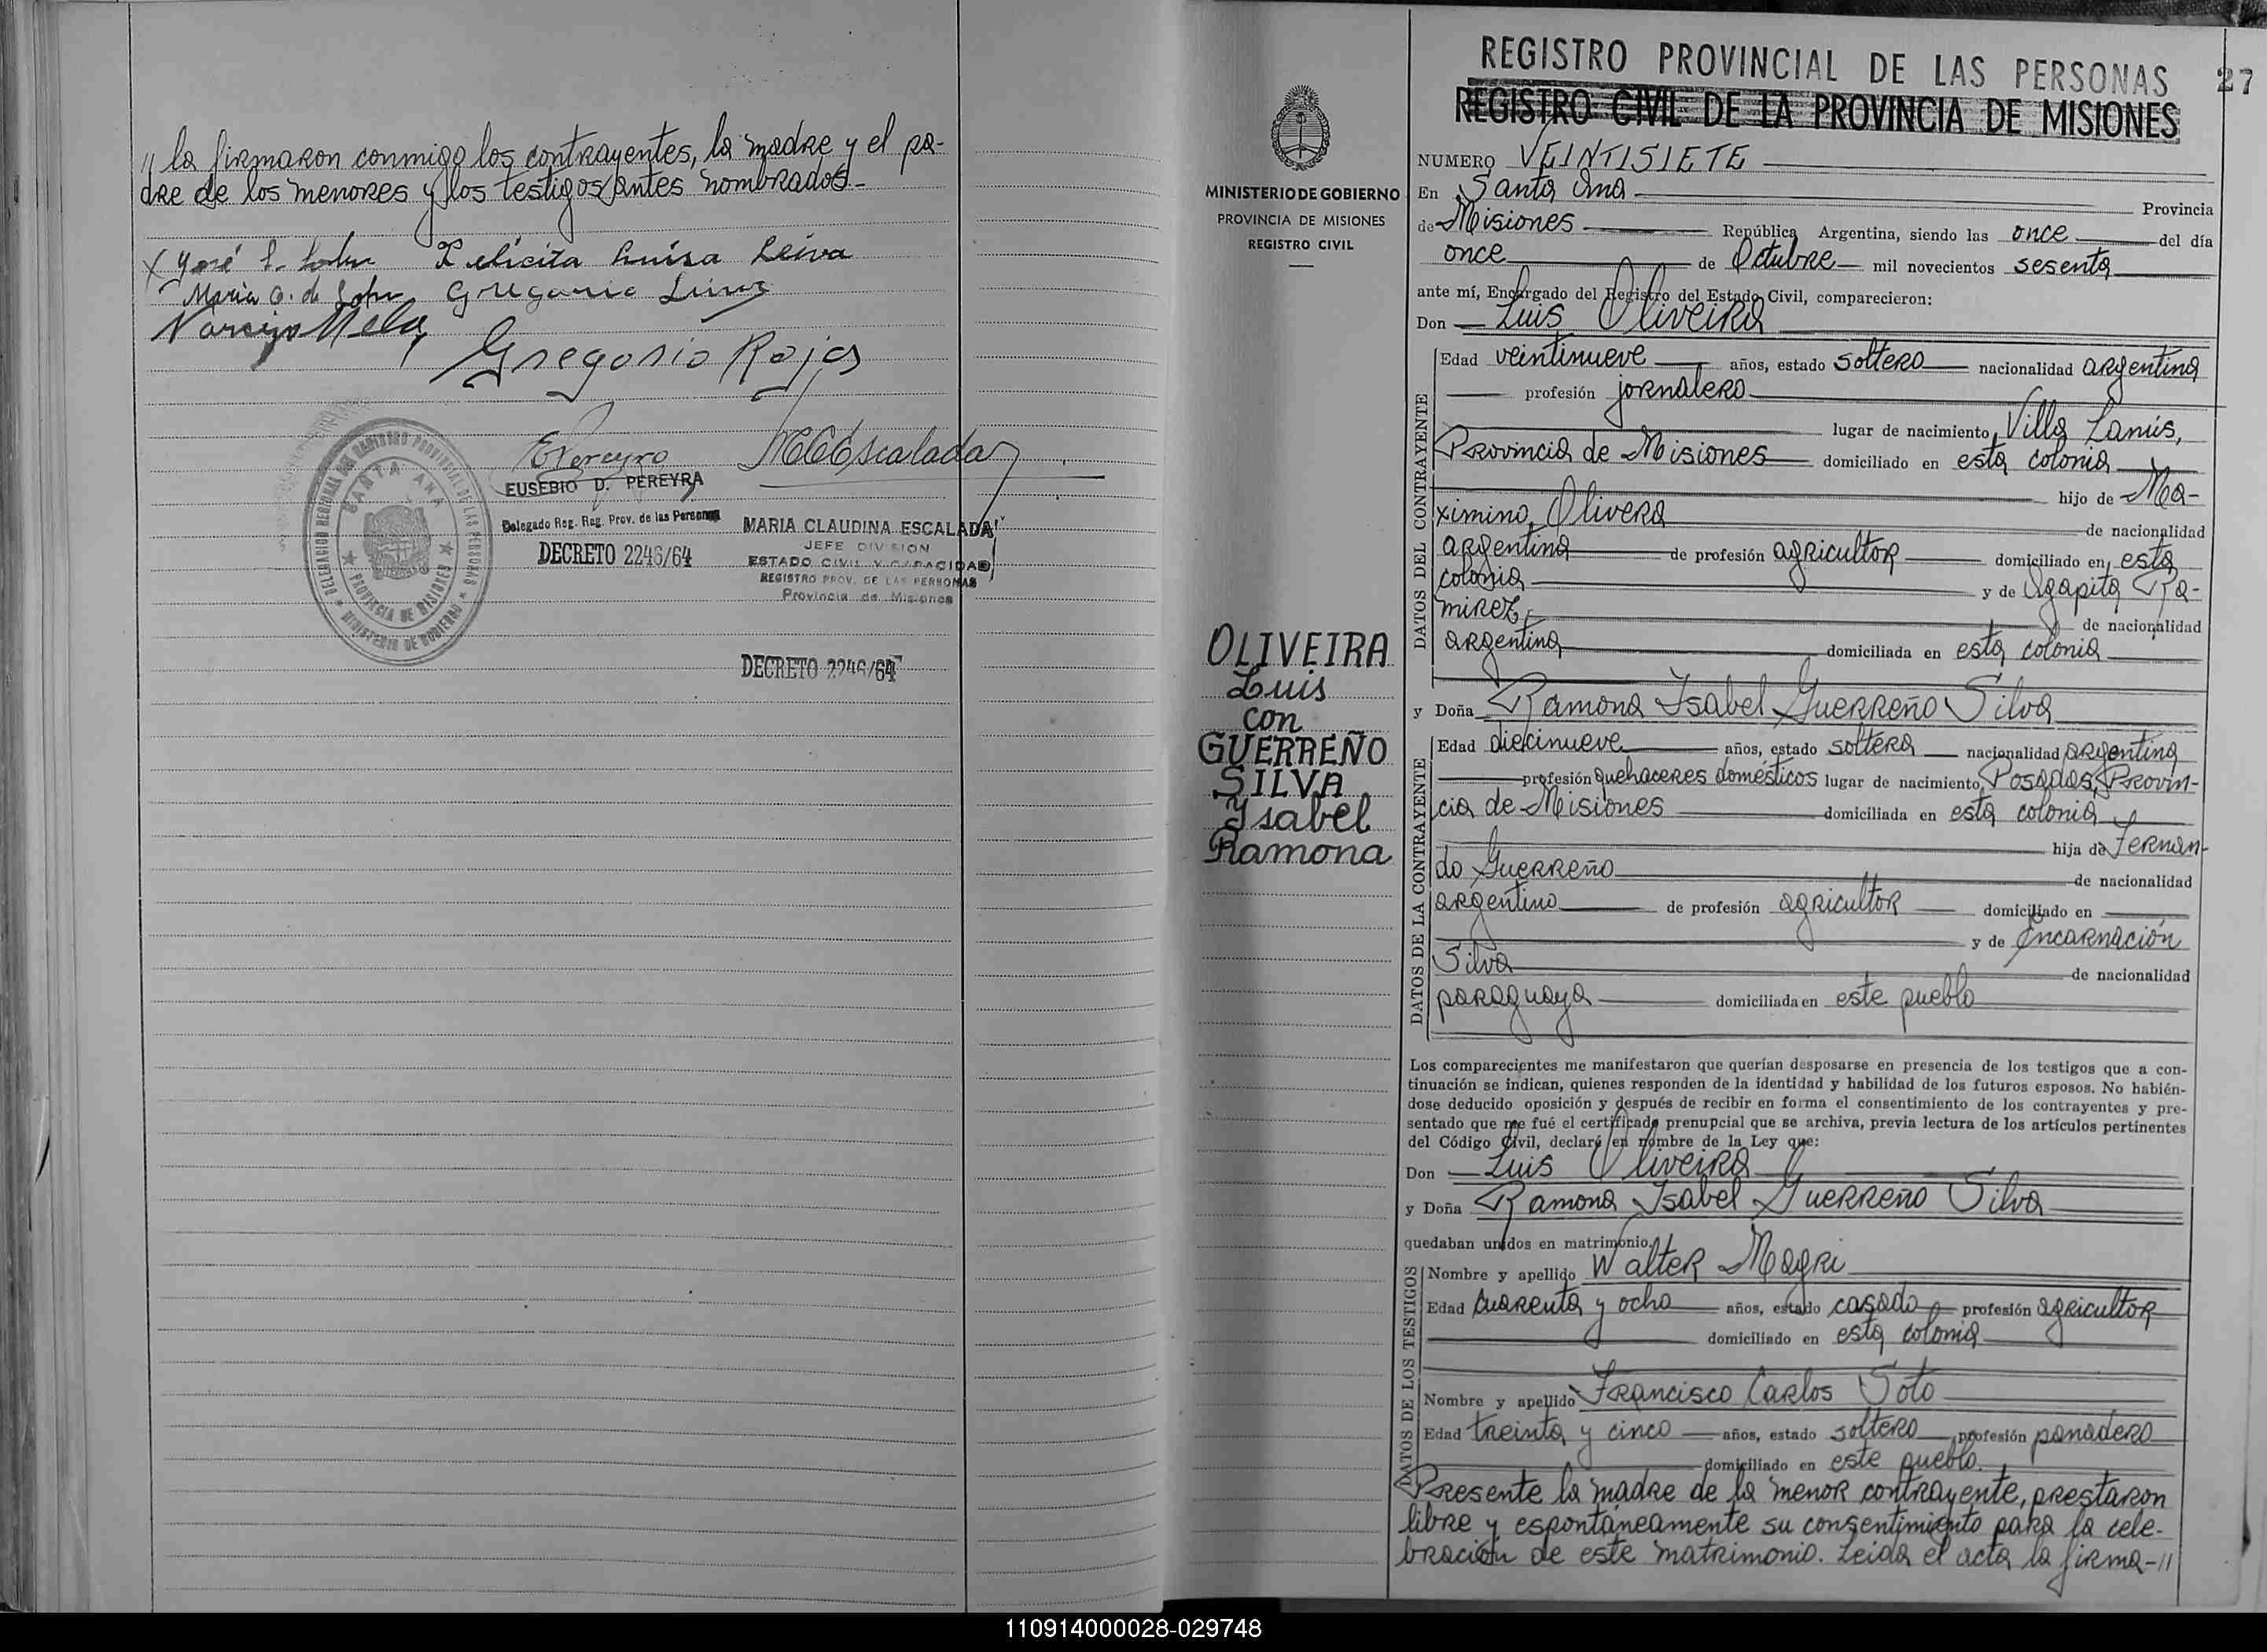 // la firmaron conmigo los contrayentes, la madre y el pa-
dre de los menores y los testigos antes nombrados.-
Felicita Luisa Leiva
Maria
Gregorio Rojas
EUSEBIO D. PEREYRA
Delegado Reg. Reg. Prov. de las Personas
DECRETO 2246/64
MCEscalada
MARIA CLAUDINA ESCALADA
JEFE DIVISION
ESTADO CIVIL Y CAPACIDAD
REGISTRO PROV. DE LAS PERSONAS
Provincia de Misiones
DECRETO 2246/64
DELEGACION REGIONAL DEL REGISTRO PROVINCIAL DE LAS PERSONAS
SANTA ANA
PROVINCIA DE MISIONES
MINISTERIO DE GOBIERNO
MINISTERIO DE GOBIERNO
PROVINCIA DE MISIONES
REGISTRO CIVIL
OLIVEIRA
Luis
con
GUERREÑO
SILVA
Ysabel
Ramona
REGISTRO PROVINCIAL DE LAS PERSONAS 27
REGISTRO CIVIL DE LA PROVINCIA DE MISIONES
NUMERO VEINTISIETE
En Santa Ana Provincia
de Misiones República Argentina, siendo las once del día
once de Octubre mil novecientos sesenta
ante mí, Encargado del Registro del Estado Civil, comparecieron:
Don Luis Oliveira
DATOS DEL CONTRAYENTE
Edad veintinueve años, estado soltero nacionalidad argentina
profesión jornalero
lugar de nacimiento Villa Lanús,
Provincia de Misiones domiciliado en esta colonia
hijo de Ma-
ximino Olivera de nacionalidad
argentina de profesión agricultor domiciliado en esta
colonia y de Agapita Ra-
mirez, de nacionalidad
argentina domiciliada en esta colonia
y Doña Ramona Isabel Guerreño Silva
DATOS DE LA CONTRAYENTE
Edad diecinueve años, estado soltera nacionalidad argentina
profesión quehaceres domésticos lugar de nacimiento Posadas, Provin-
cia de Misiones domiciliada en esta colonia
hija de Fernan-
do Guerreño de nacionalidad
argentino de profesión agricultor domiciliado en
y de Encarnación
Silva de nacionalidad
paraguaya domiciliada en este pueblo
Los comparecientes me manifestaron que querían desposarse en presencia de los testigos que a con-
tinuación se indican, quienes responden de la identidad y habilidad de los futuros esposos. No habién-
dose deducido oposición y después de recibir en forma el consentimiento de los contrayentes y pre-
sentado que me fué el certificado prenupcial que se archiva, previa lectura de los artículos pertinentes
del Código Civil, declaré en nombre de la Ley que:
Don Luis Oliveira
y Doña Ramona Isabel Guerreño Silva
quedaban unidos en matrimonio.
DATOS DE LOS TESTIGOS
Nombre y apellido Walter Magri
Edad cuarenta y ocho años, estado casado profesión agricultor
domiciliado en esta colonia
Nombre y apellido Francisco Carlos Soto
Edad treinta y cinco años, estado soltero profesión panadero
domiciliado en este pueblo.
Presente la madre de la menor contrayente, prestaron
libre y espontáneamente su consentimiento para la cele-
bración de este matrimonio. Leida el acta la firma-//
110914000028-029748